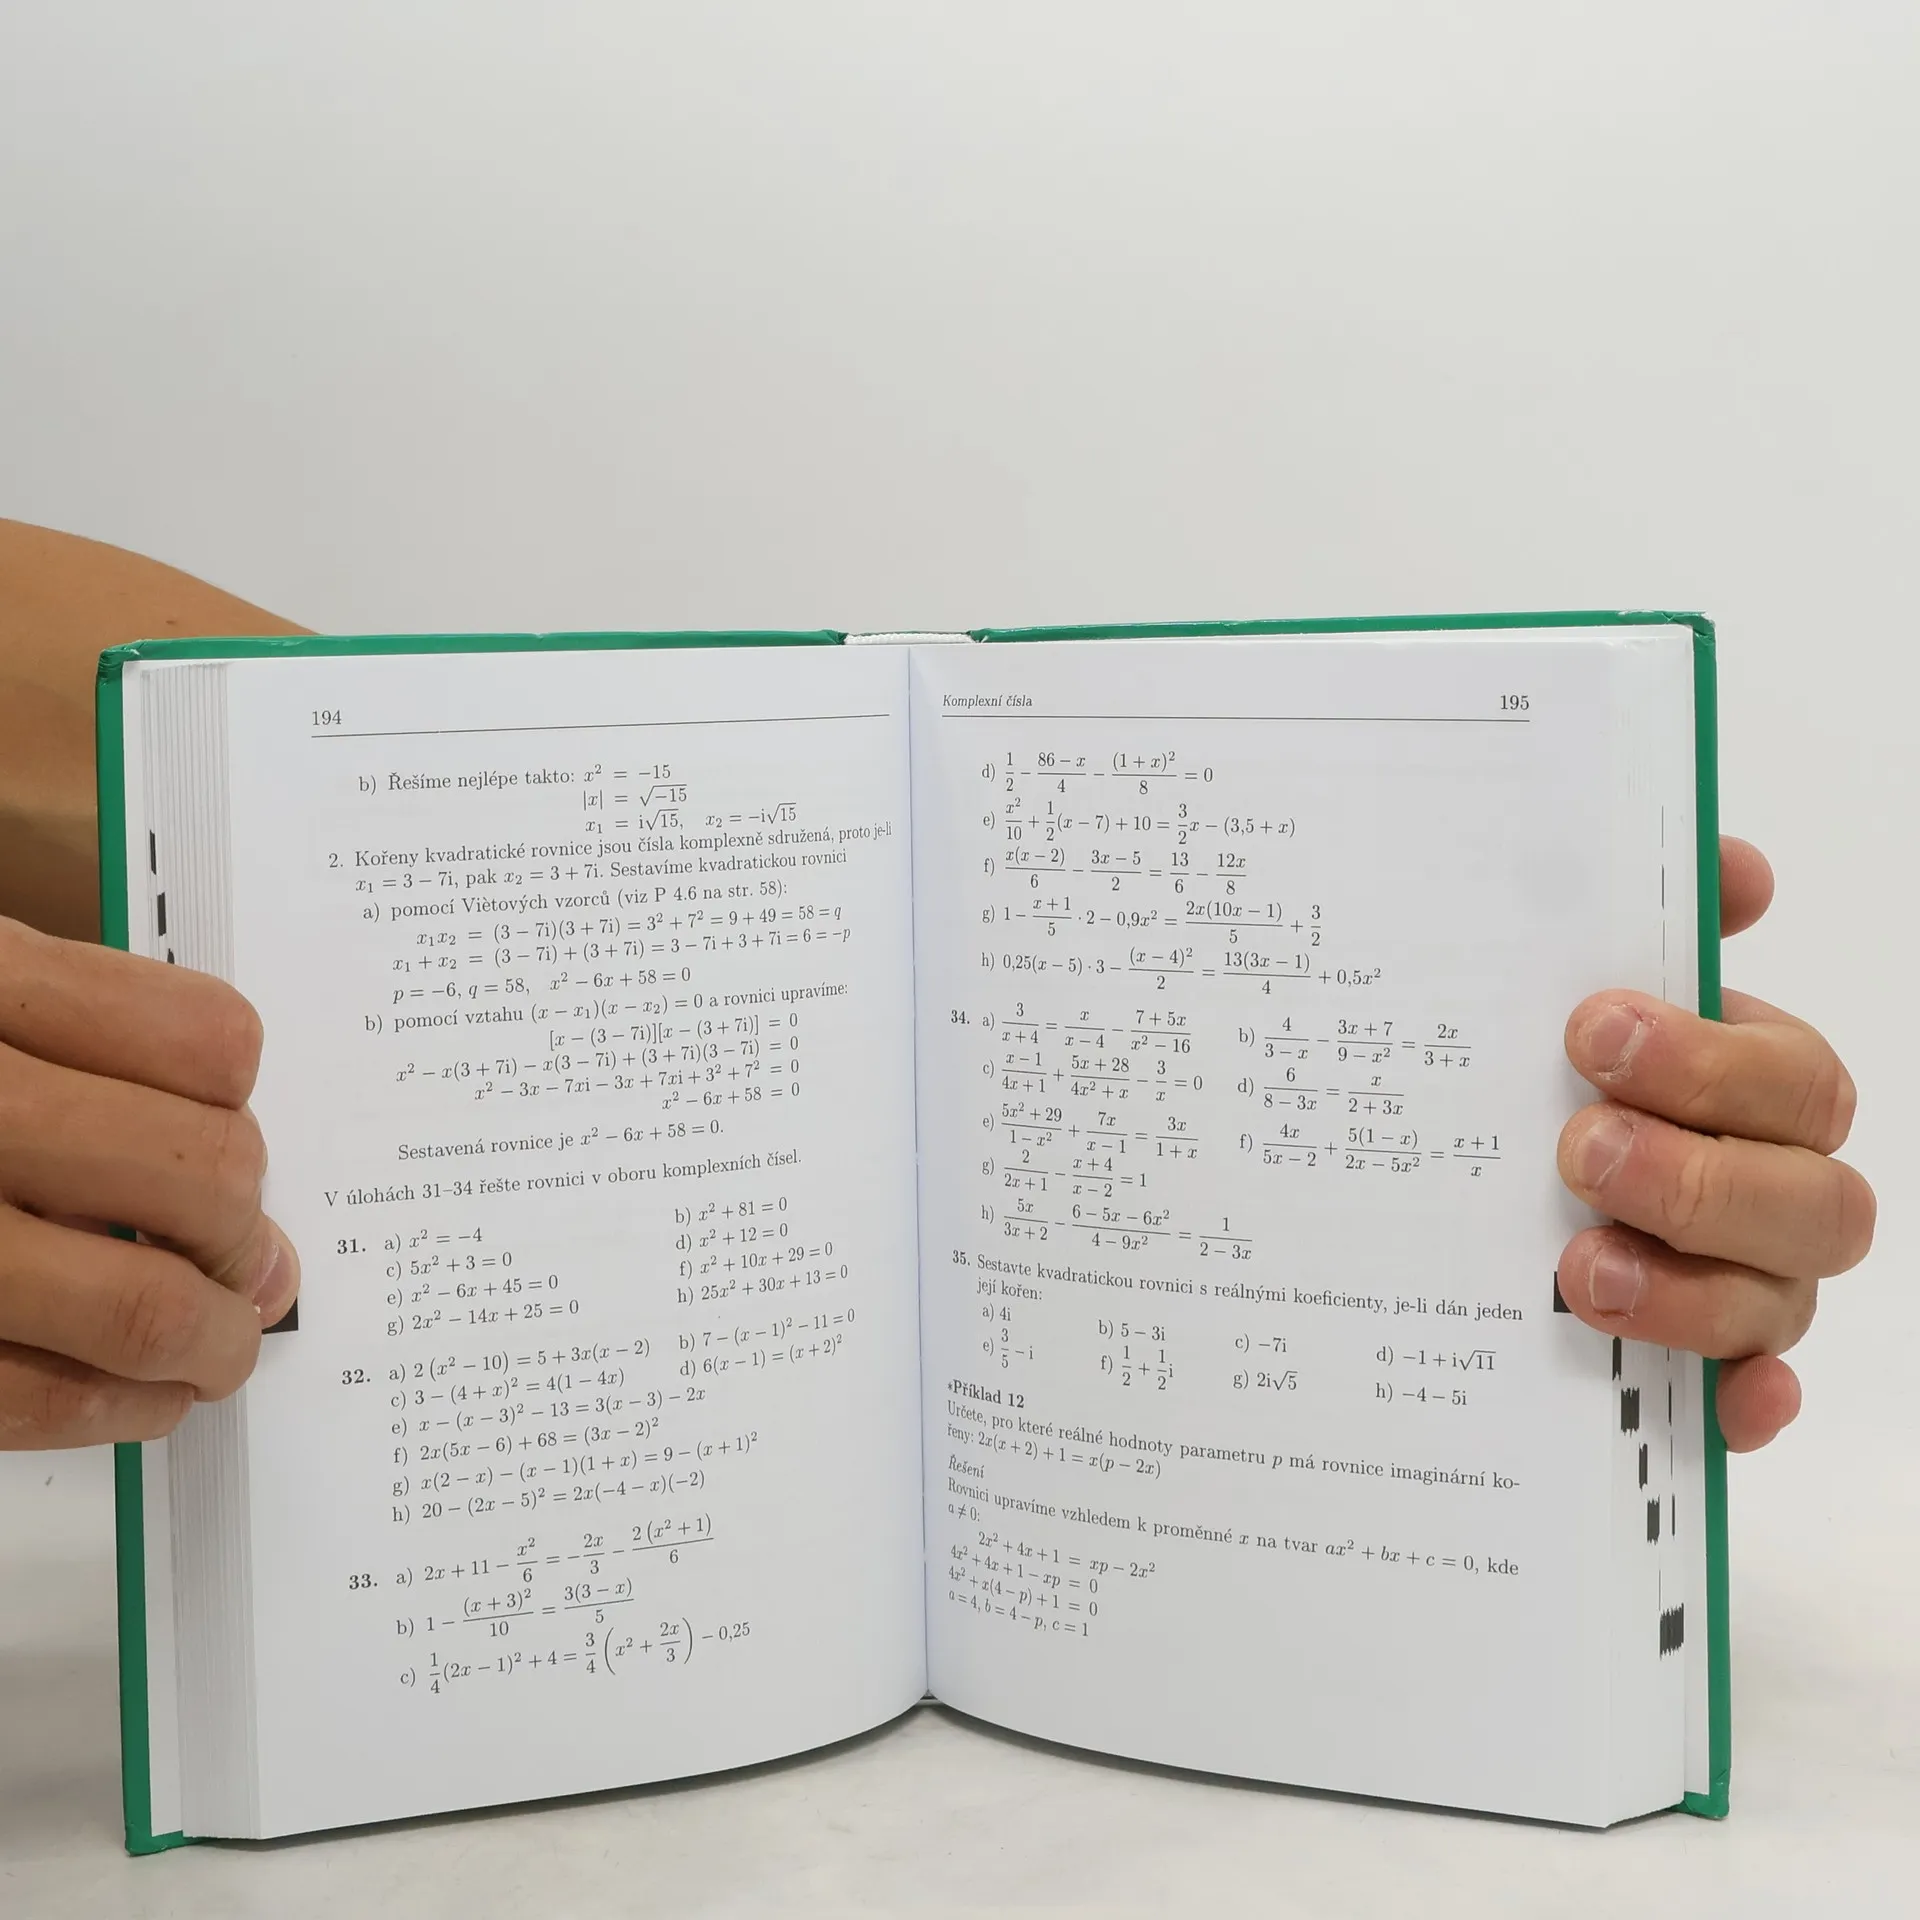 194
b) Řešíme nejlépe takto: x² = −15
|x| = √−15
x₁ = i√15, x₂ = −i√15
2. Kořeny kvadratické rovnice jsou čísla komplexně sdružená, proto je-li
x₁ = 3 − 7i, pak x₂ = 3 + 7i. Sestavíme kvadratickou rovnici
a) pomocí Viètových vzorců (viz P 4.6 na str. 58):
x₁x₂ = (3 − 7i)(3 + 7i) = 3² + 7² = 9 + 49 = 58 = q
x₁ + x₂ = (3 − 7i) + (3 + 7i) = 3 − 7i + 3 + 7i = 6 = −p
p = −6, q = 58, x² − 6x + 58 = 0
b) pomocí vztahu (x − x₁)(x − x₂) = 0 a rovnici upravíme:
[x − (3 − 7i)][x − (3 + 7i)] = 0
x² − x(3 + 7i) − x(3 − 7i) + (3 + 7i)(3 − 7i) = 0
x² − 3x − 7xi − 3x + 7xi + 3² + 7² = 0
x² − 6x + 58 = 0
Sestavená rovnice je x² − 6x + 58 = 0.
V úlohách 31–34 řešte rovnici v oboru komplexních čísel.
31. a) x² = −4 b) x² + 81 = 0
c) 5x² + 3 = 0 d) x² + 12 = 0
e) x² − 6x + 45 = 0 f) x² + 10x + 29 = 0
g) 2x² − 14x + 25 = 0 h) 25x² + 30x + 13 = 0
32. a) 2(x² − 10) = 5 + 3x(x − 2) b) 7 − (x − 1)² − 11 = 0
c) 3 − (4 + x)² = 4(1 − 4x) d) 6(x − 1) = (x + 2)²
e) x − (x − 3)² − 13 = 3(x − 3) − 2x
f) 2x(5x − 6) + 68 = (3x − 2)²
g) x(2 − x) − (x − 1)(1 + x) = 9 − (x + 1)²
h) 20 − (2x − 5)² = 2x(−4 − x)(−2)
33. a) 2x + 11 − x²/6 = −2x/3 − 2(x² + 1)/6
b) 1 − (x + 3)²/10 = 3(3 − x)/5
c) 1/4(2x − 1)² + 4 = 3/4(x² + 2x/3) − 0,25
Komplexní čísla 195
d) 1/2 − (86 − x)/4 − (1 + x)²/8 = 0
e) x²/10 + 1/2(x − 7) + 10 = 3/2x − (3,5 + x)
f) x(x − 2)/6 − (3x − 5)/2 = 13/6 − 12x/8
g) 1 − (x + 1)/5 · 2 − 0,9x² = 2x(10x − 1)/5 + 3/2
h) 0,25(x − 5) · 3 − (x − 4)²/2 = 13(3x − 1)/4 + 0,5x²
34. a) 3/(x + 4) = x/(x − 4) − (7 + 5x)/(x² − 16) b) 4/(3 − x) − (3x + 7)/(9 − x²) = 2x/(3 + x)
c) (x − 1)/(4x + 1) + (5x + 28)/(4x² + x) − 3/x = 0 d) 6/(8 − 3x) = x/(2 + 3x)
e) (5x² + 29)/(1 − x²) + 7x/(x − 1) = 3x/(1 + x) f) 4x/(5x − 2) + 5(1 − x)/(2x − 5x²) = (x + 1)/x
g) 2/(2x + 1) − (x + 4)/(x − 2) = 1
h) 5x/(3x + 2) − (6 − 5x − 6x²)/(4 − 9x²) = 1/(2 − 3x)
35. Sestavte kvadratickou rovnici s reálnými koeficienty, je-li dán jeden
její kořen:
a) 4i b) 5 − 3i c) −7i d) −1 + i√11
e) 3/5 − i f) 1/2 + 1/2i g) 2i√5 h) −4 − 5i
*Příklad 12
Určete, pro které reálné hodnoty parametru p má rovnice imaginární ko-
řeny: 2x(x + 2) + 1 = x(p − 2x)
Řešení
Rovnici upravíme vzhledem k proměnné x na tvar ax² + bx + c = 0, kde
a ≠ 0:
2x² + 4x + 1 = xp − 2x²
4x² + 4x + 1 − xp = 0
4x² + x(4 − p) + 1 = 0
a = 4, b = 4 − p, c = 1